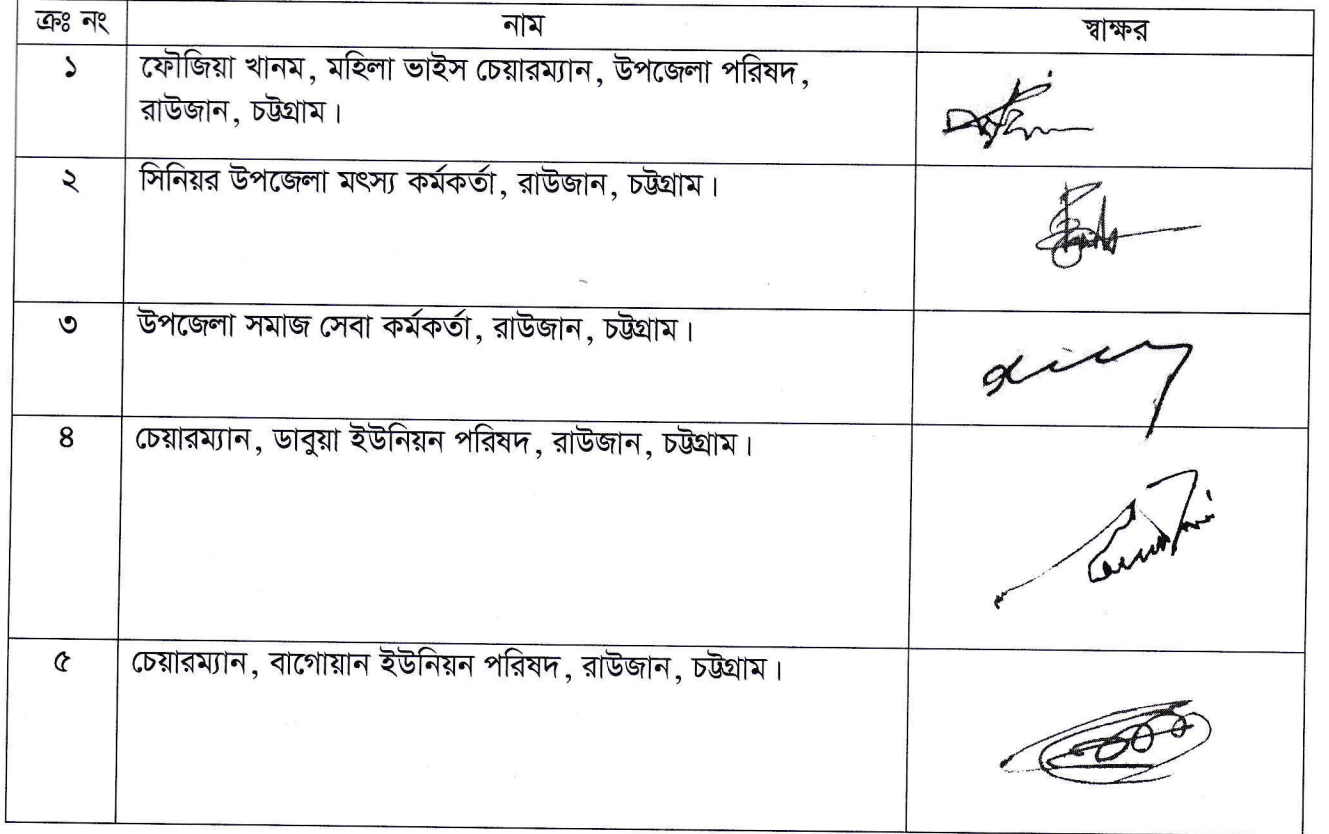 ক্রঃ নং নাম স্বাক্ষর
১ ফৌজিয়া খানম, মহিলা ভাইস চেয়ারম্যান, উপজেলা পরিষদ,
রাউজান, চট্টগ্রাম।
২ সিনিয়র উপজেলা মৎস্য কর্মকর্তা, রাউজান, চট্টগ্রাম।
৩ উপজেলা সমাজ সেবা কর্মকর্তা, রাউজান, চট্টগ্রাম।
৪ চেয়ারম্যান, ডাবুয়া ইউনিয়ন পরিষদ, রাউজান, চট্টগ্রাম।
৫ চেয়ারম্যান, বাগোয়ান ইউনিয়ন পরিষদ, রাউজান, চট্টগ্রাম।